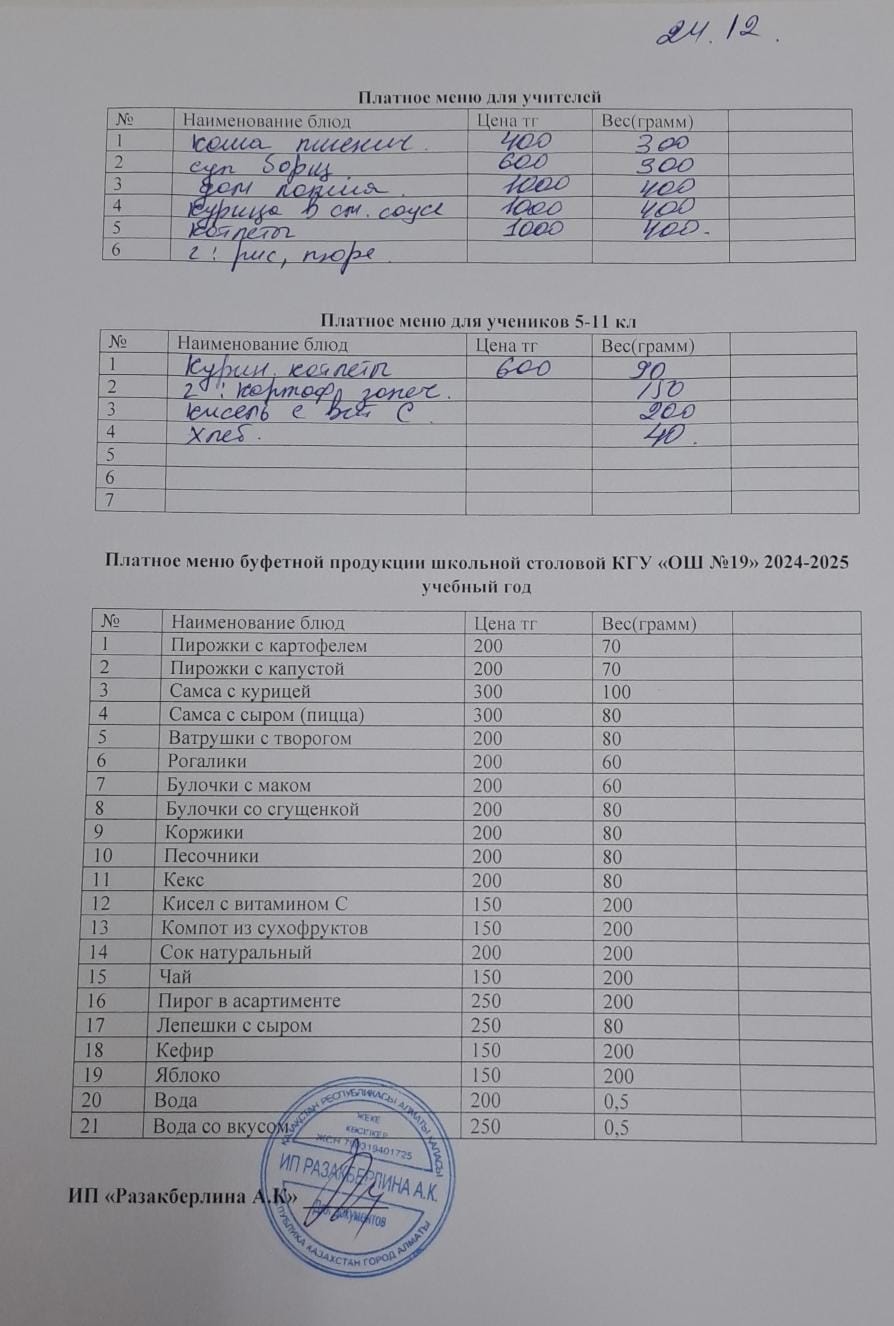 24.12.
Платное меню для учителей
№ Наименование блюд Цена тг Вес(грамм)
1 каша пшенич. 400 300
2 суп борщ 600 300
3 дом лапша. 1000 400
4 курица в см. соусе 1000 400
5 котлеты 1000 400.
6 г: рис, пюре.
Платное меню для учеников 5-11 кл
№ Наименование блюд Цена тг Вес(грамм)
1 Курин. котлеты 600 90
2 г: картоф, запеч. 150
3 кисель с вит С 200
4 хлеб. 40.
5
6
7
Платное меню буфетной продукции школьной столовой КГУ «ОШ №19» 2024-2025
учебный год
№ Наименование блюд Цена тг Вес(грамм)
1 Пирожки с картофелем 200 70
2 Пирожки с капустой 200 70
3 Самса с курицей 300 100
4 Самса с сыром (пицца) 300 80
5 Ватрушки с творогом 200 80
6 Рогалики 200 60
7 Булочки с маком 200 60
8 Булочки со сгущенкой 200 80
9 Коржики 200 80
10 Песочники 200 80
11 Кекс 200 80
12 Кисел с витамином С 150 200
13 Компот из сухофруктов 150 200
14 Сок натуральный 200 200
15 Чай 150 200
16 Пирог в асартименте 250 200
17 Лепешки с сыром 250 80
18 Кефир 150 200
19 Яблоко 150 200
20 Вода 200 0,5
21 Вода со вкусом 250 0,5
ҚАЗАҚСТАН РЕСПУБЛИКАСЫ АЛМАТЫ ҚАЛАСЫ
ЖЕКЕ
КӘСІПКЕР
ЖСН
ИП РАЗАКБЕРЛИНА А.К.
ИП «Разакберлина А.К»
Для документов
РЕСПУБЛИКА КАЗАХСТАН ГОРОД АЛМАТЫ